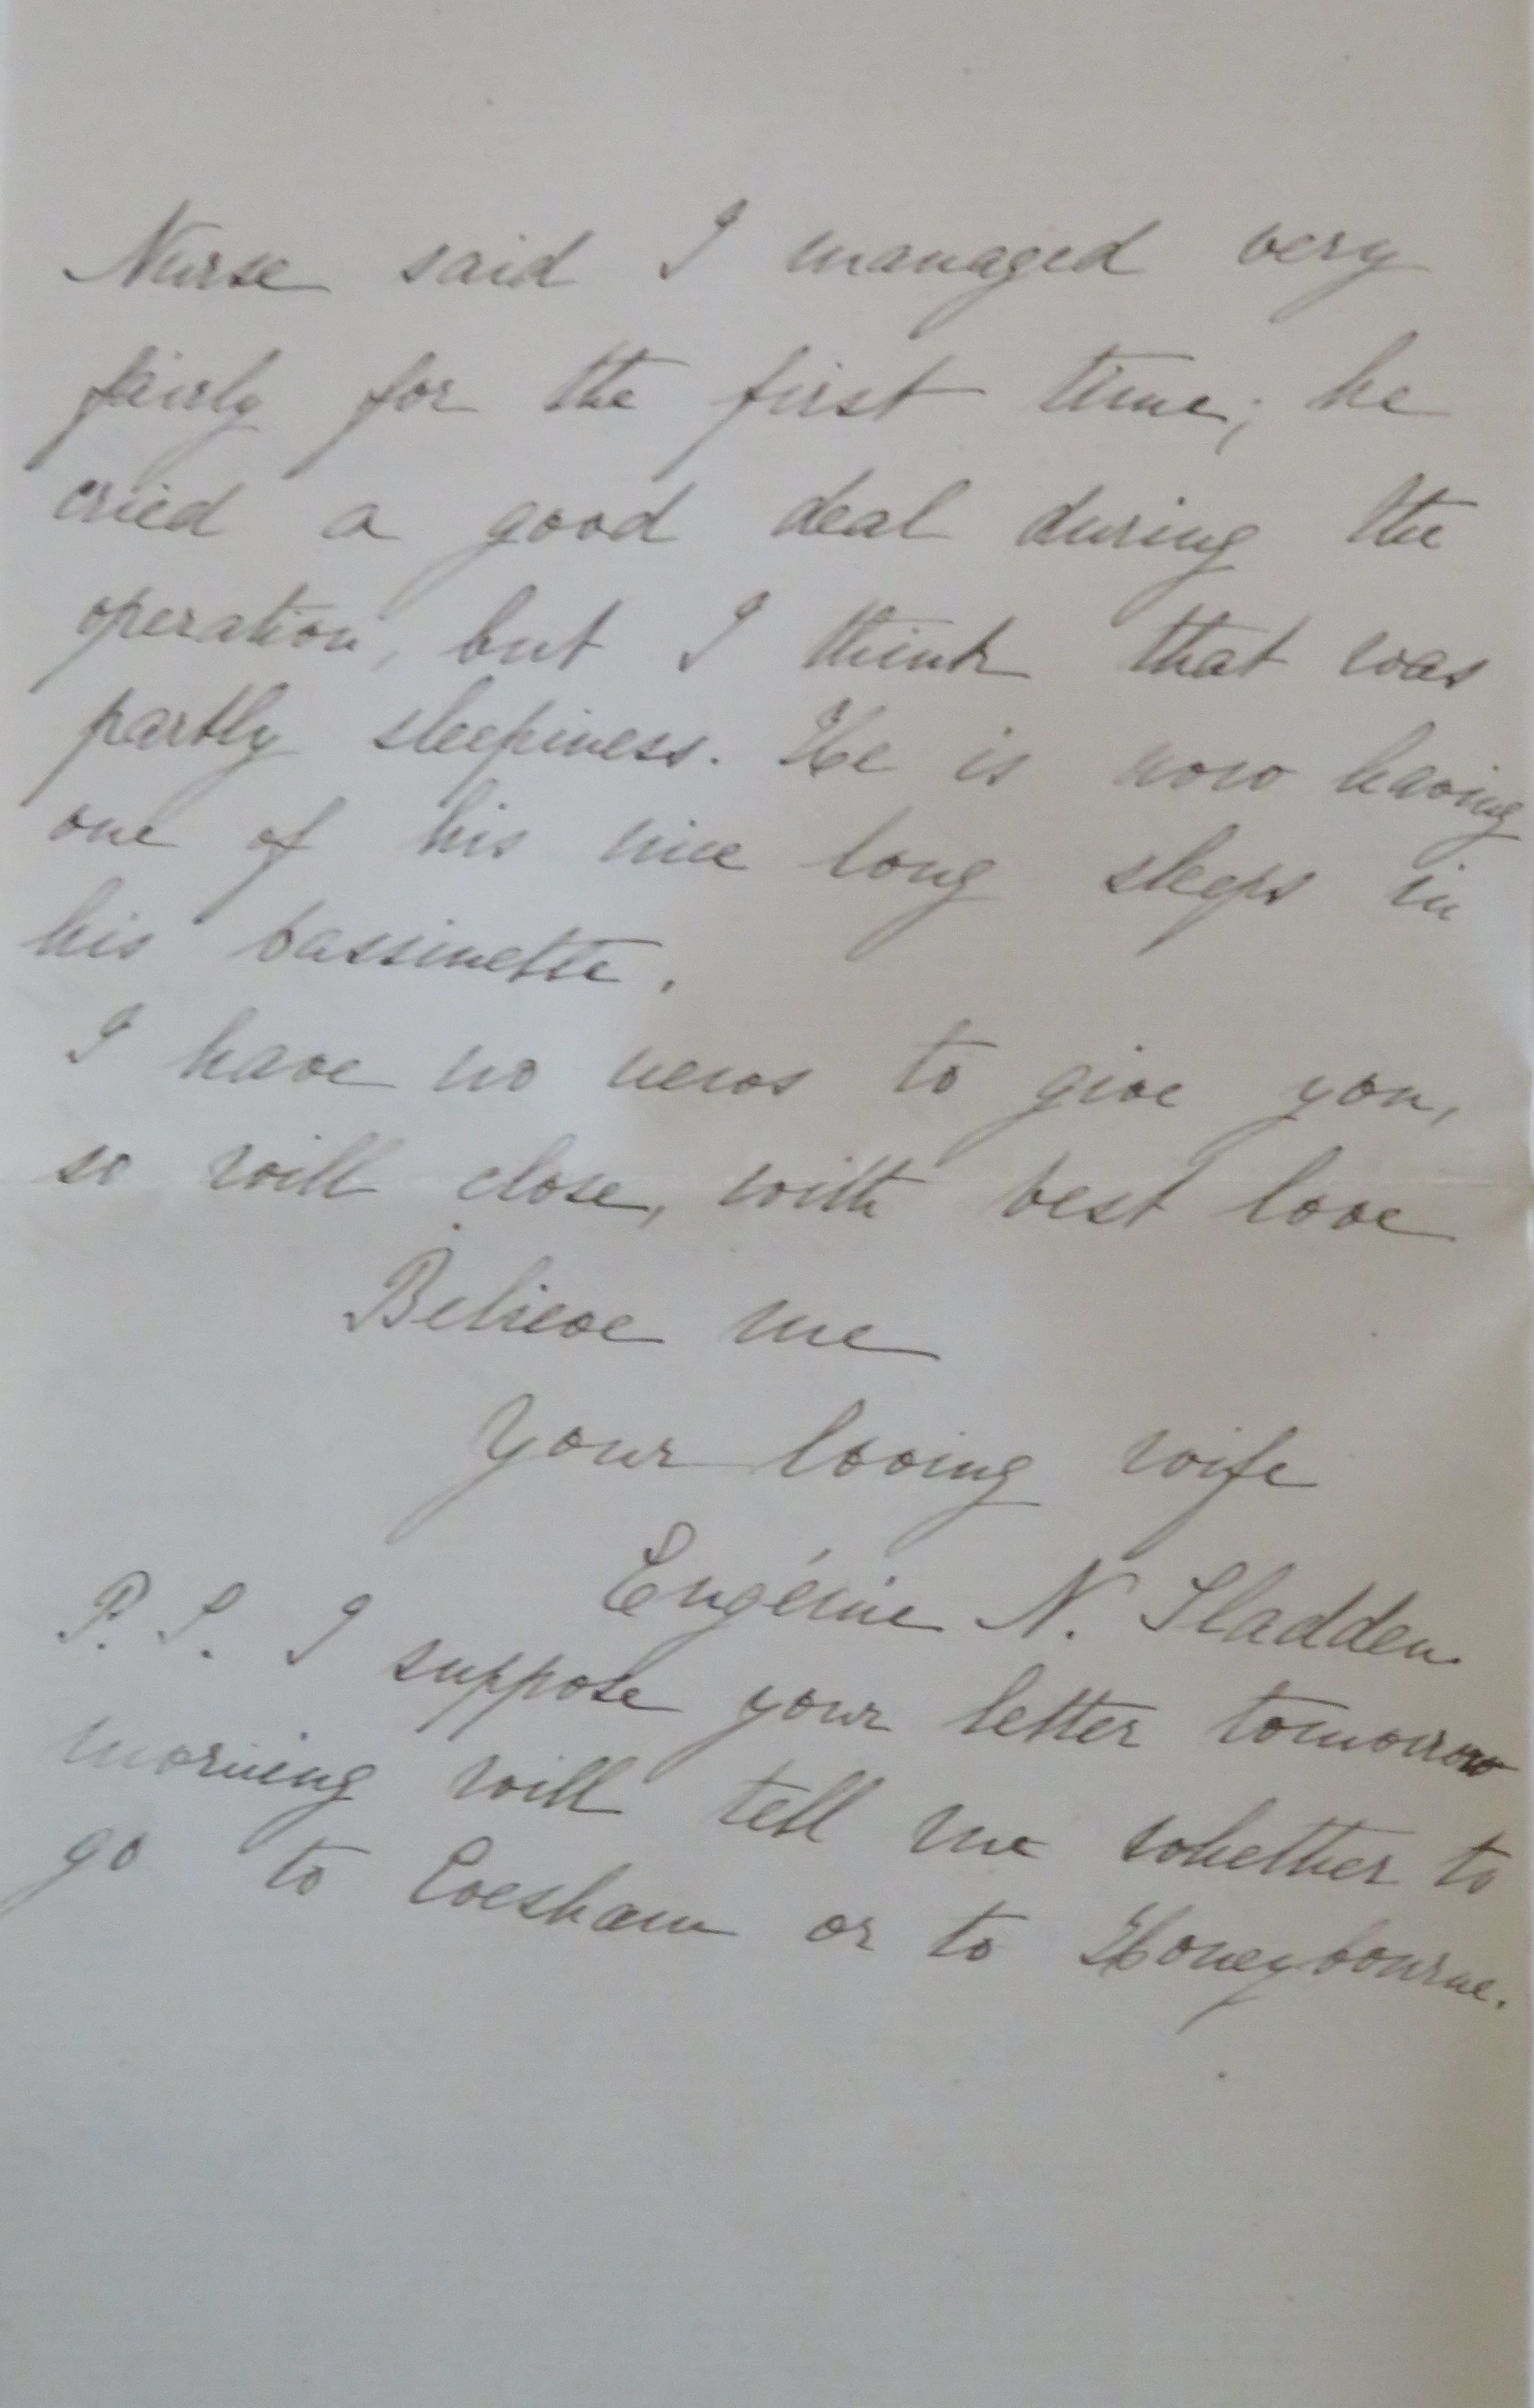 Nurse said I managed very
fairly for the first time; he
cried a good deal during the
operation, but I think that was
partly sleepiness. He is now having
one of his nice long sleeps in
his bassinette.
I have no news to give you,
so will close, with best love
Believe me
Your loving wife
Eugénie N. Sladden.
P.S. I suppose your letter tomorrow
morning will tell me whether to
go to Evesham or to Honeybourne.